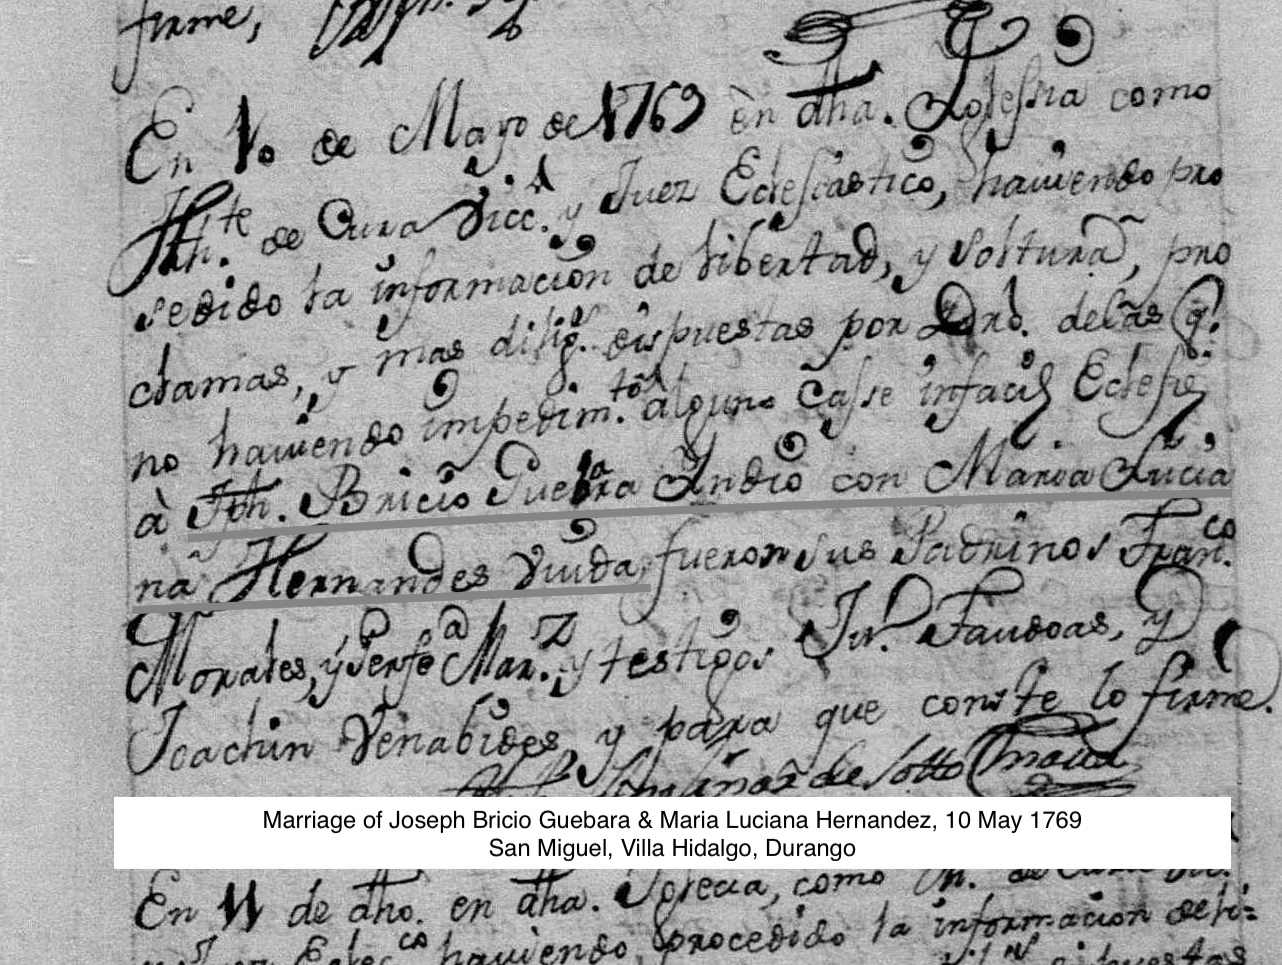 firme,
En 10 de Mayo de 1769 en dha. Iglessia como
Thn.te de Cura Vicc.º y Juez Eclesiastico, haviendo pro
sedido la informacion de libertad, y soltura, pro
clamas, y mas dilig.s dispuestas por Dro. delas q.e
no haviendo impedim.to alguno Casse infacie Eclesie
à Jph. Bricio Guebara Indio con Maria Lucia
na Hernandes Viuda, fueron sus Padrinos Fran.co
Morales, y Mar.z y testigos Jn. Fandoas, y
Joachin Venabides, y para que conste lo firme.
de Sotto
Marriage of Joseph Bricio Guebara & Maria Luciana Hernandez, 10 May 1769
San Miguel, Villa Hidalgo, Durango
En 11 de dho. en dha. Iglecia, como
haviendo procedido la informacion de li=